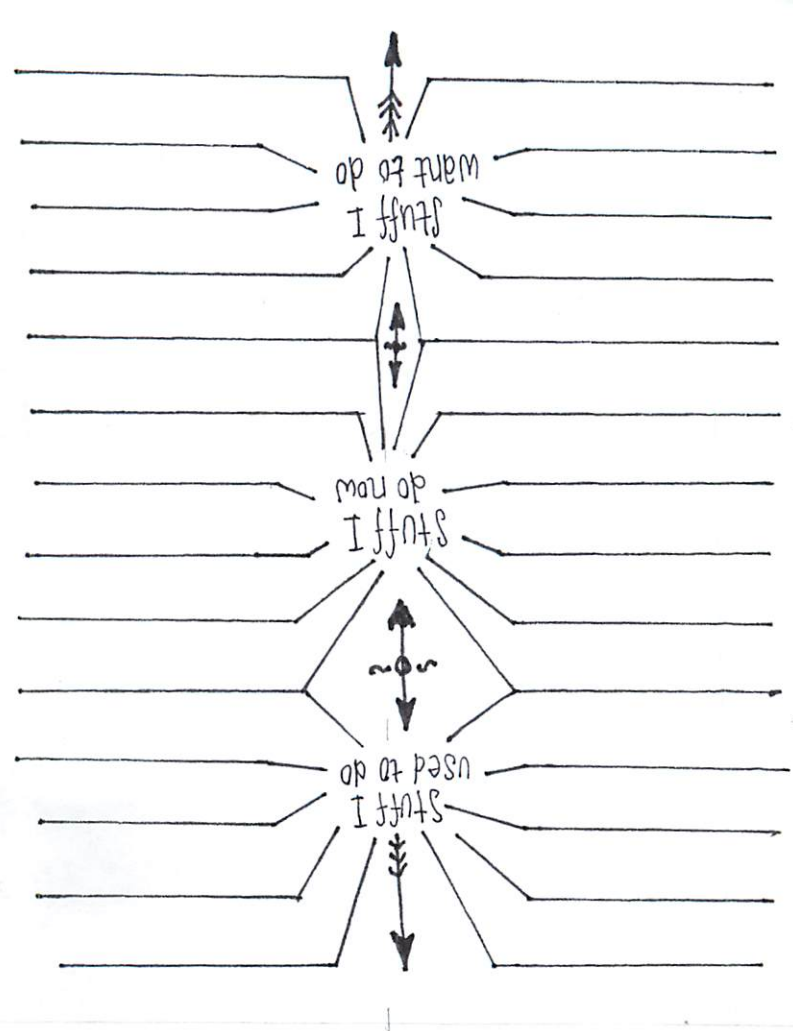 Stuff I
used to do
Stuff I
do now
Stuff I
want to do